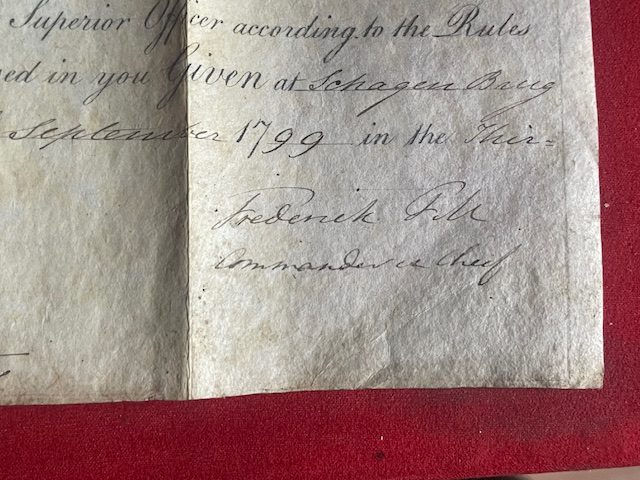 Superior Officer according to the Rules
ed in you Given at Schagen Brug
September 1799 in the Thir=
Frederick F.M
Commander in Chief